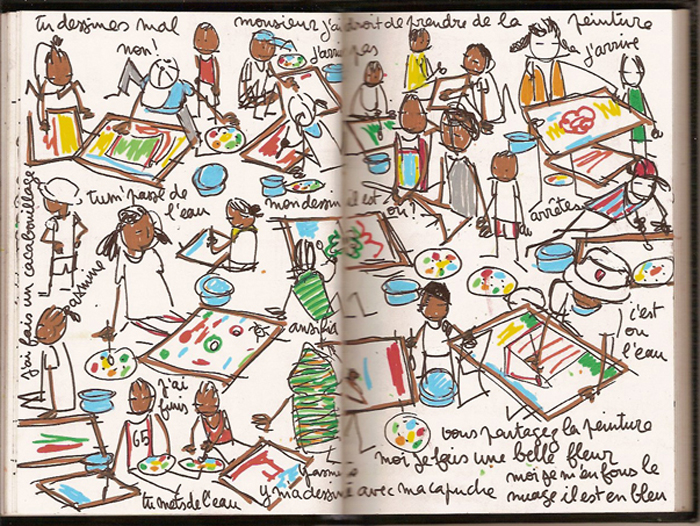 tu dessines mal
non!
monsieur j'ai droit de prendre de la peinture
j'arrive pas
j'arrive
j'ai fais un cacabouillage
tu m'passe de
l'eau
mon dessin il est
où!
arrêtes
jasmine
ansifia
c'est
ou
l'eau
j'ai
finis
65
vous partagez la peinture
moi je fais une belle fleur
moi je m'en fous le
nuage il est en bleu
tu mets de l'eau
y m'a dessiné avec ma capuche